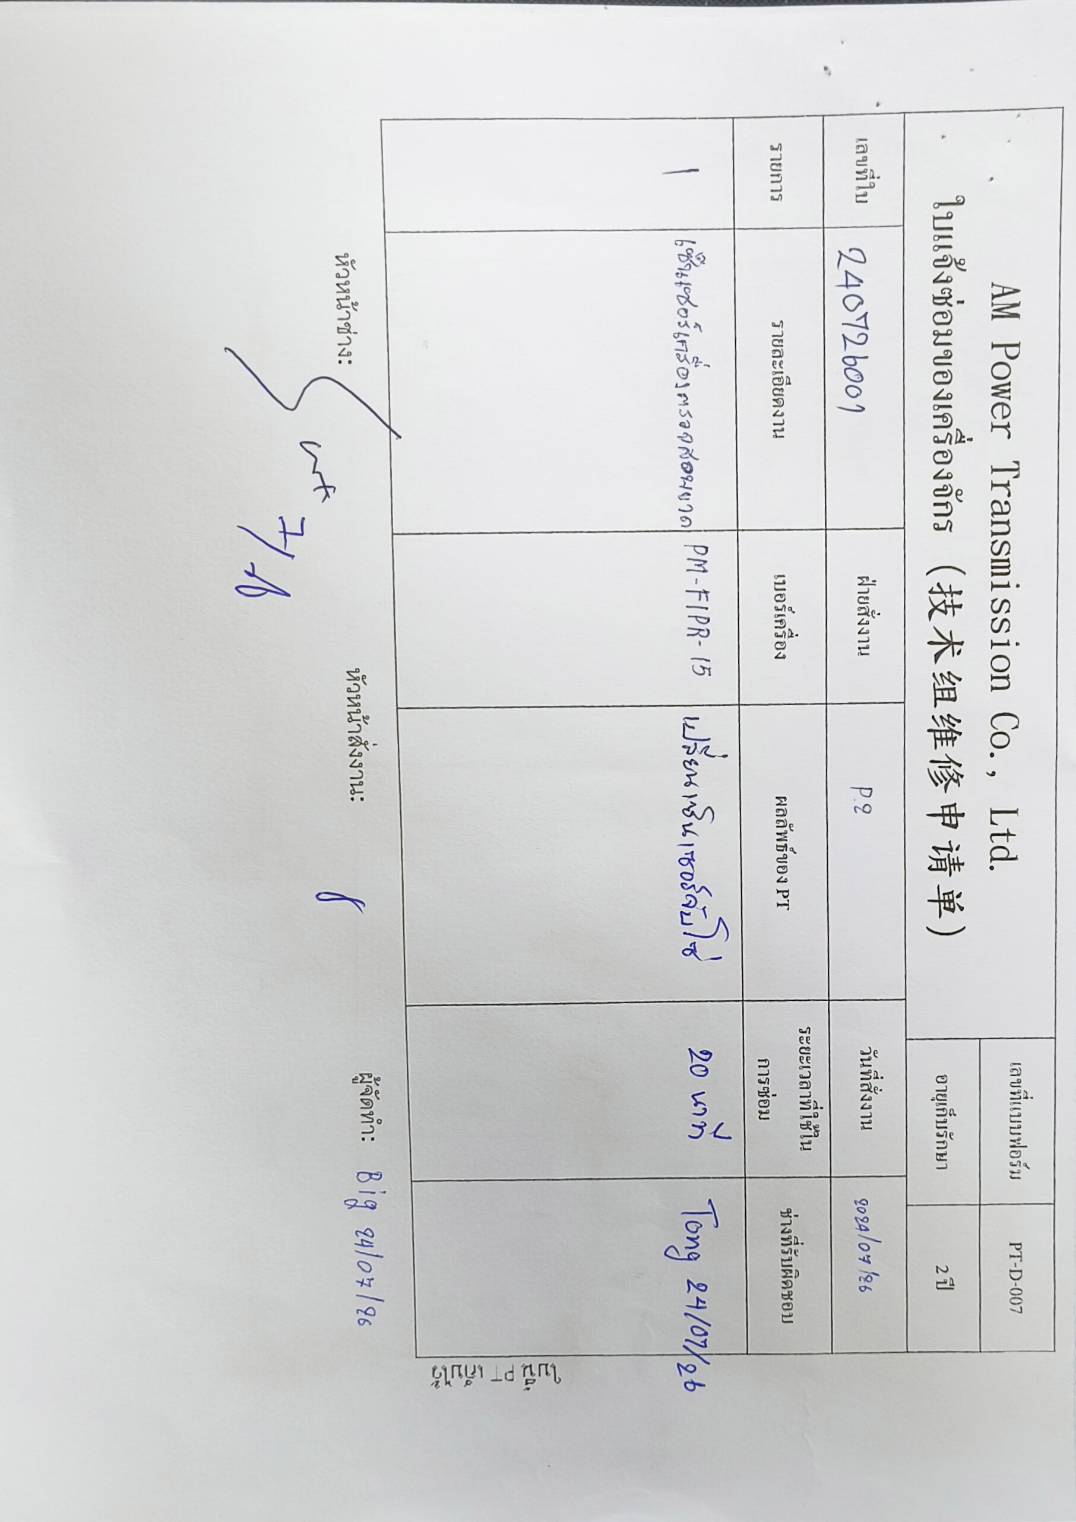 AM Power Transmission Co., Ltd.
ใบแจ้งซ่อมของเครื่องจักร (技术组维修申请单)
เลขที่แบบฟอร์ม PT-D-007
อายุเก็บรักษา 2 ปี
เลขที่ใบ 240726001 ฝ่ายสั่งงาน P.2 วันที่สั่งงาน 2024/07/26
รายการ รายละเอียดงาน เบอร์เครื่อง ผลลัพธ์ของ PT ระยะเวลาที่ใช้ในการซ่อม ช่างที่รับผิดชอบ
1 เซ็นเซอร์เครื่องตรวจสอบขาด PM-FIPR-15 เปลี่ยนเซ็นเซอร์จับโซ่ 20 นาที Tong 24/07/26
ใบนี้ PT เก็บไว้
หัวหน้าช่าง: หัวหน้าสั่งงาน: ผู้จัดทำ: Big 24/07/26